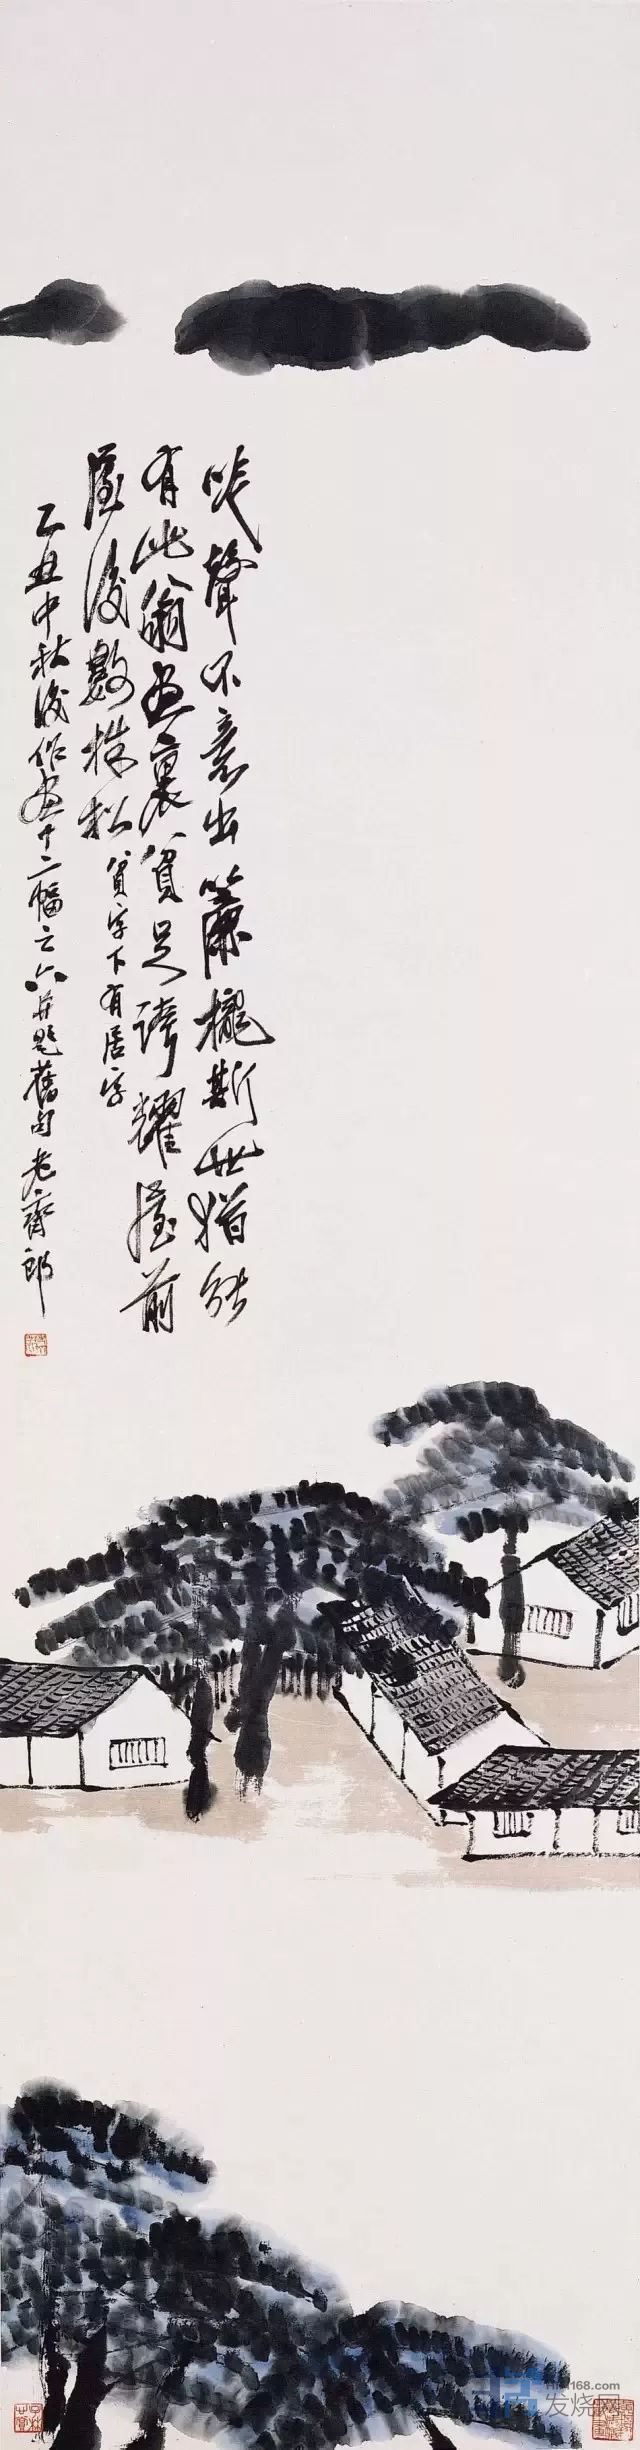 聲不意出簾櫳斯世猶能
有此翁畫裏貧足誇耀屋前
屋後數株松 貧字下有居字
乙丑中秋後作畫十二幅之六并題舊句老齊郎
168.com
发烧网